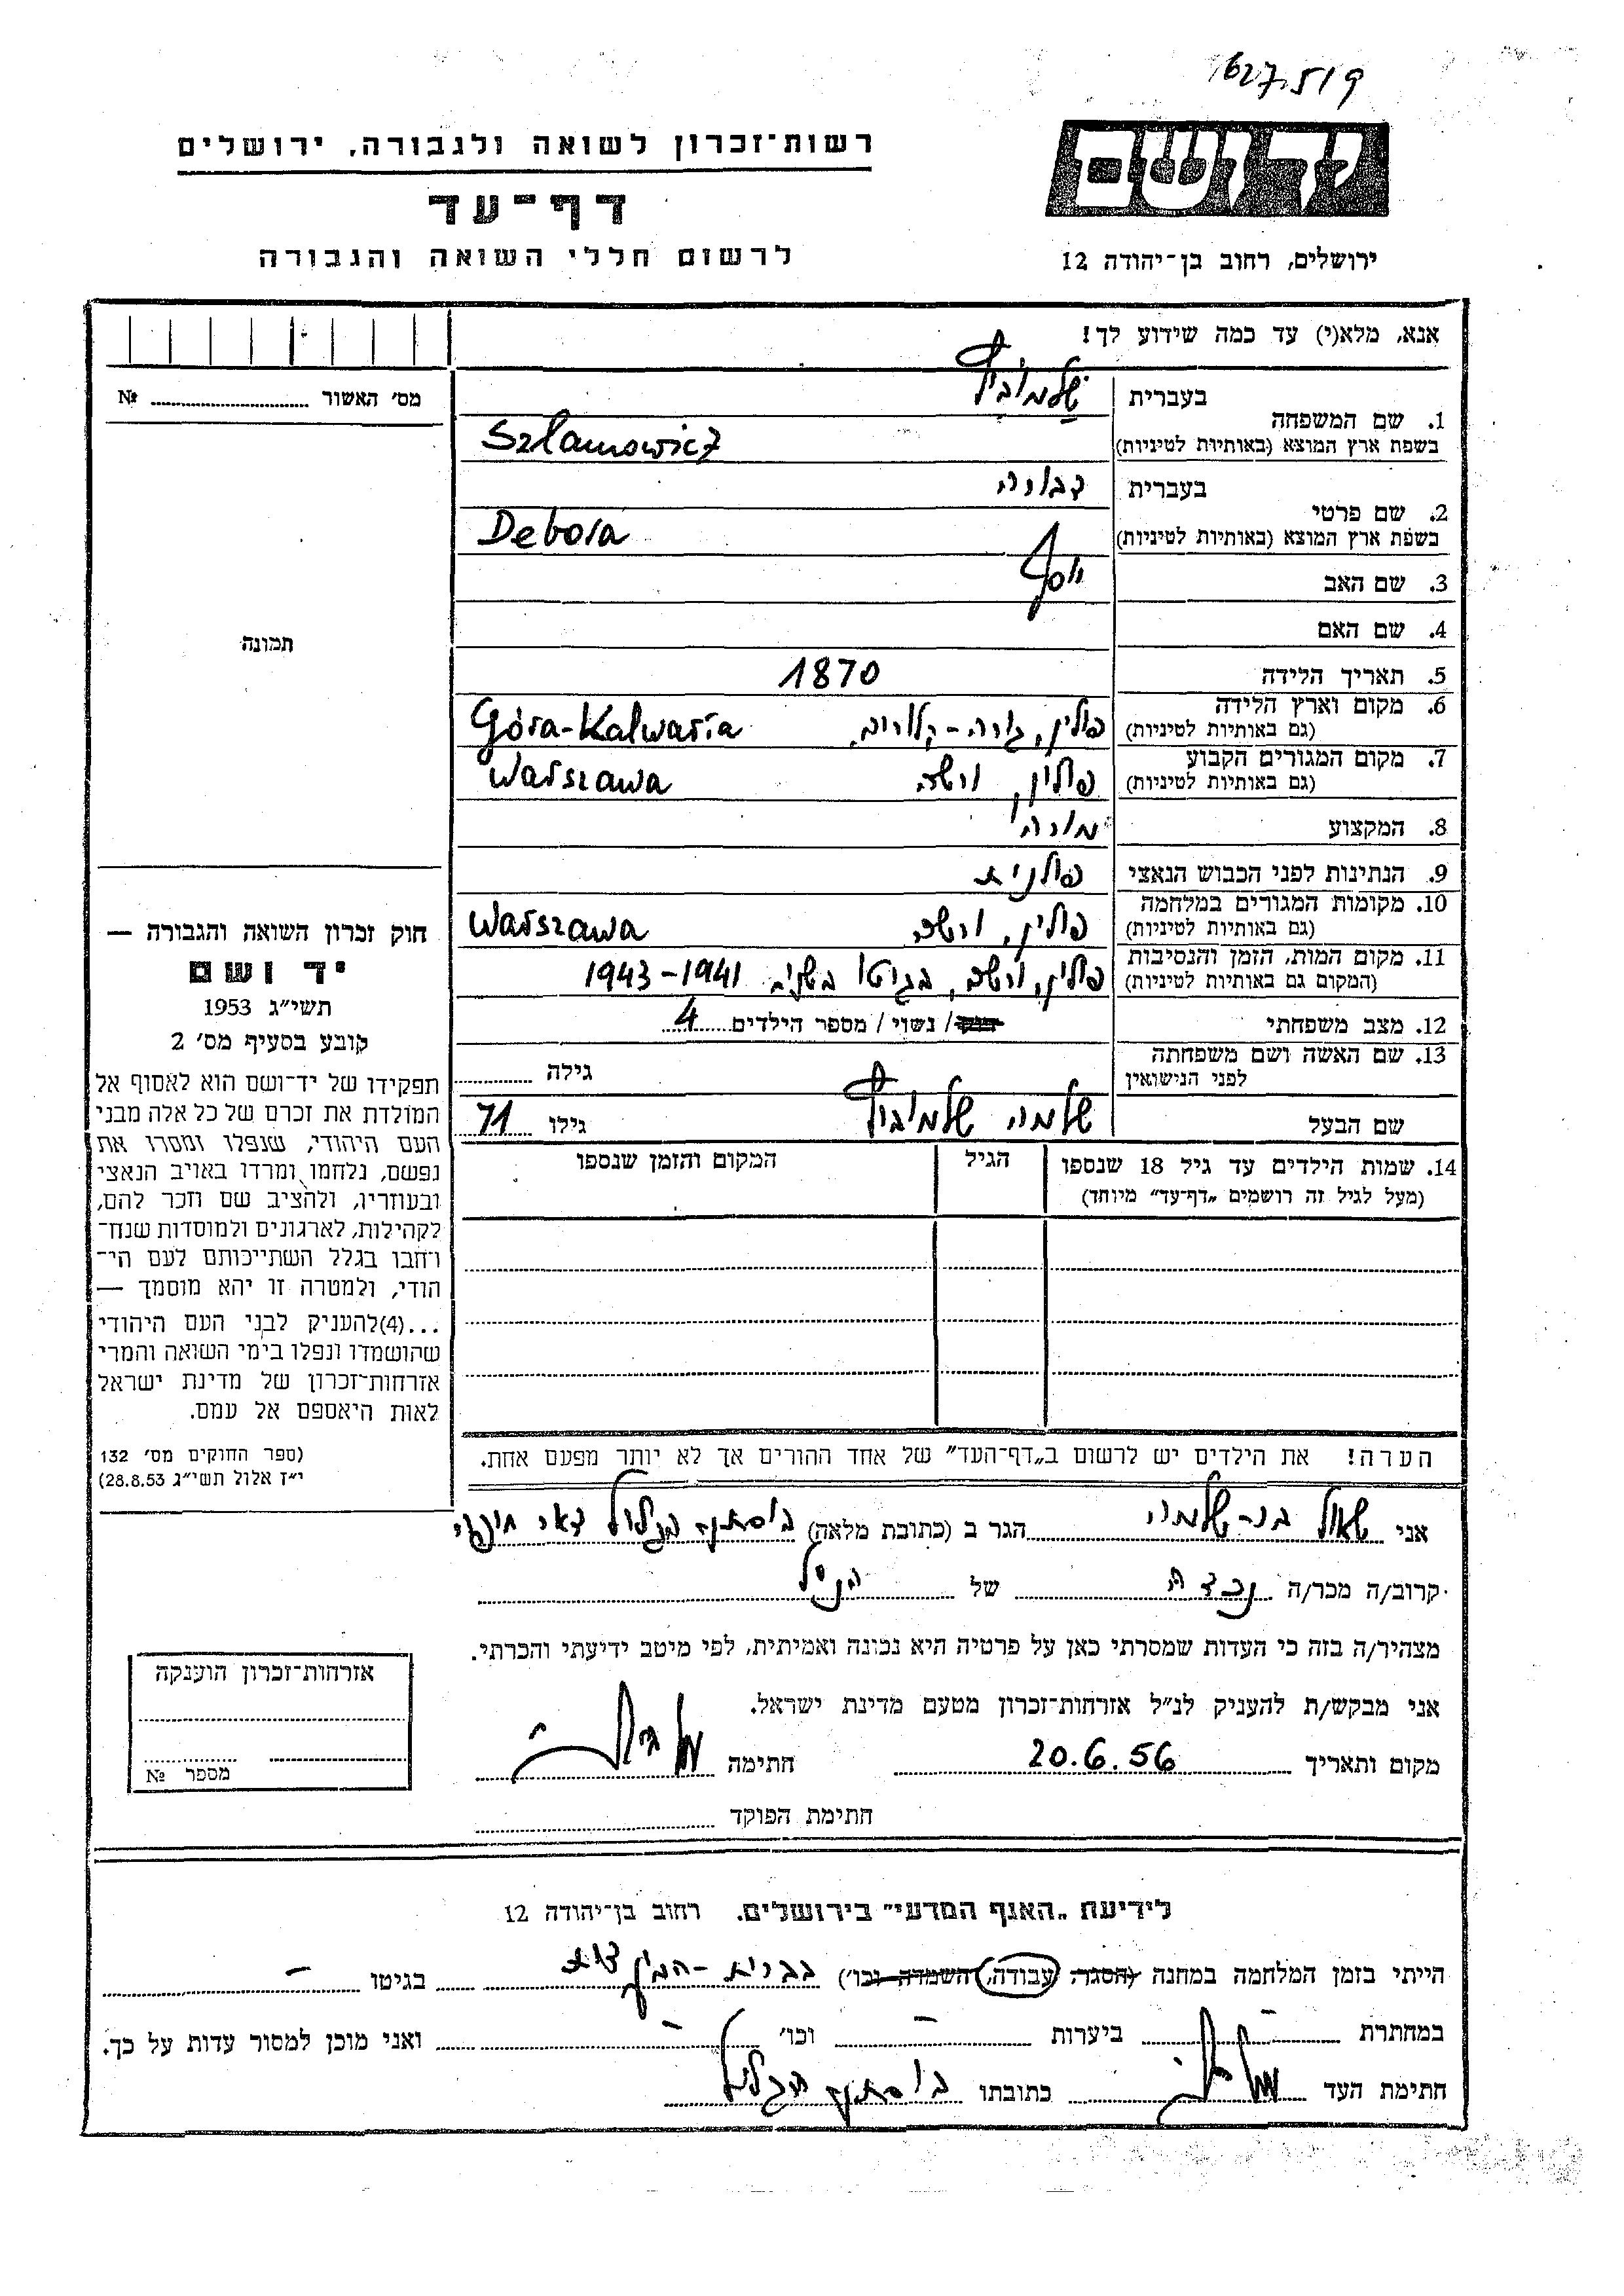 1627.519
רשות־זכרון לשואה ולגבורה, ירושלים
דף־עד
לרשום חללי השואה והגבורה
יד ושם
ירושלים, רחוב בן־יהודה 12
אנא, מלא(י) עד כמה שידוע לך!
1. שם המשפחה בעברית שלמוביץ
בשפת ארץ המוצא (באותיות לטיניות) Szlamowicz
2. שם פרטי בעברית דבורה
בשפת ארץ המוצא (באותיות לטיניות) Debora
3. שם האב יוסף
4. שם האם
5. תאריך הלידה 1870
6. מקום וארץ הלידה
(גם באותיות לטיניות) פולין, גורה-קלוריה, Góra-Kalwaria
7. מקום המגורים הקבוע
(גם באותיות לטיניות) פולין, ורשה Warszawa
8. המקצוע מורה
9. הנתינות לפני הכבוש הנאצי פולנית
10. מקומות המגורים במלחמה
(גם באותיות לטיניות) פולין, ורשה Warszawa
11. מקום המות, הזמן והנסיבות
(המקום גם באותיות לטיניות) פולין, ורשה, בגיטו בשנים 1941-1943
12. מצב משפחתי רווק / נשוי / מספר הילדים 4
13. שם האשה ושם משפחתה
לפני הנישואין גילה
שם הבעל שלמה שלמוביץ גילו 71
14. שמות הילדים עד גיל 18 שנספו הגיל המקום והזמן שנספו
(מעל לגיל זה רושמים „דף־עד” מיוחד)
הערה! את הילדים יש לרשום ב„דף־העד” של אחד ההורים אך לא יותר מפעם אחת.
מס׳ האשור № 
תמונה
חוק זכרון השואה והגבורה —
יד ושם
תשי״ג 1953
קובע בסעיף מס׳ 2
תפקידו של יד־ושם הוא לאסוף אל
המולדת את זכרם של כל אלה מבני
העם היהודי, שנפלו ומסרו את
נפשם, נלחמו ומרדו באויב הנאצי
ובעוזריו, ולהציב שם וזכר להם,
לקהילות, לארגונים ולמוסדות שנח־
רחבו בגלל השתייכותם לעם הי־
הודי, ולמטרה זו יהא מוסמך —
...(4)להעניק לבני העם היהודי
שהושמדו ונפלו בימי השואה והמרי
אזרחות־זכרון של מדינת ישראל
לאות היאספם אל עמם.
(ספר החוקים מס׳ 132
י״ז אלול תשי״ג 28.8.53)
אני שאול בן-שלמה הגר ב (כתובת מלאה) בוסתן הגליל
קרוב/ה מכר/ה נכדה של הנ״ל
מצהיר/ה בזה כי העדות שמסרתי כאן על פרטיה היא נכונה ואמיתית, לפי מיטב ידיעתי והכרתי.
אני מבקש/ת להעניק לנ״ל אזרחות־זכרון מטעם מדינת ישראל.
מקום ותאריך 20.6.56 חתימה
חתימת הפוקד
אזרחות־זכרון הוענקה
מספר №
לידיעת „האגף המדעי” בירושלים, רחוב בן־יהודה 12
הייתי בזמן המלחמה במחנה (הסגר, עבודה, השמדה וכו׳) בברית-המועצות בגיטו —
במחתרת — ביערות — וכו׳ — ואני מוכן למסור עדות על כך.
חתימת העד כתובתו בוסתן הגליל